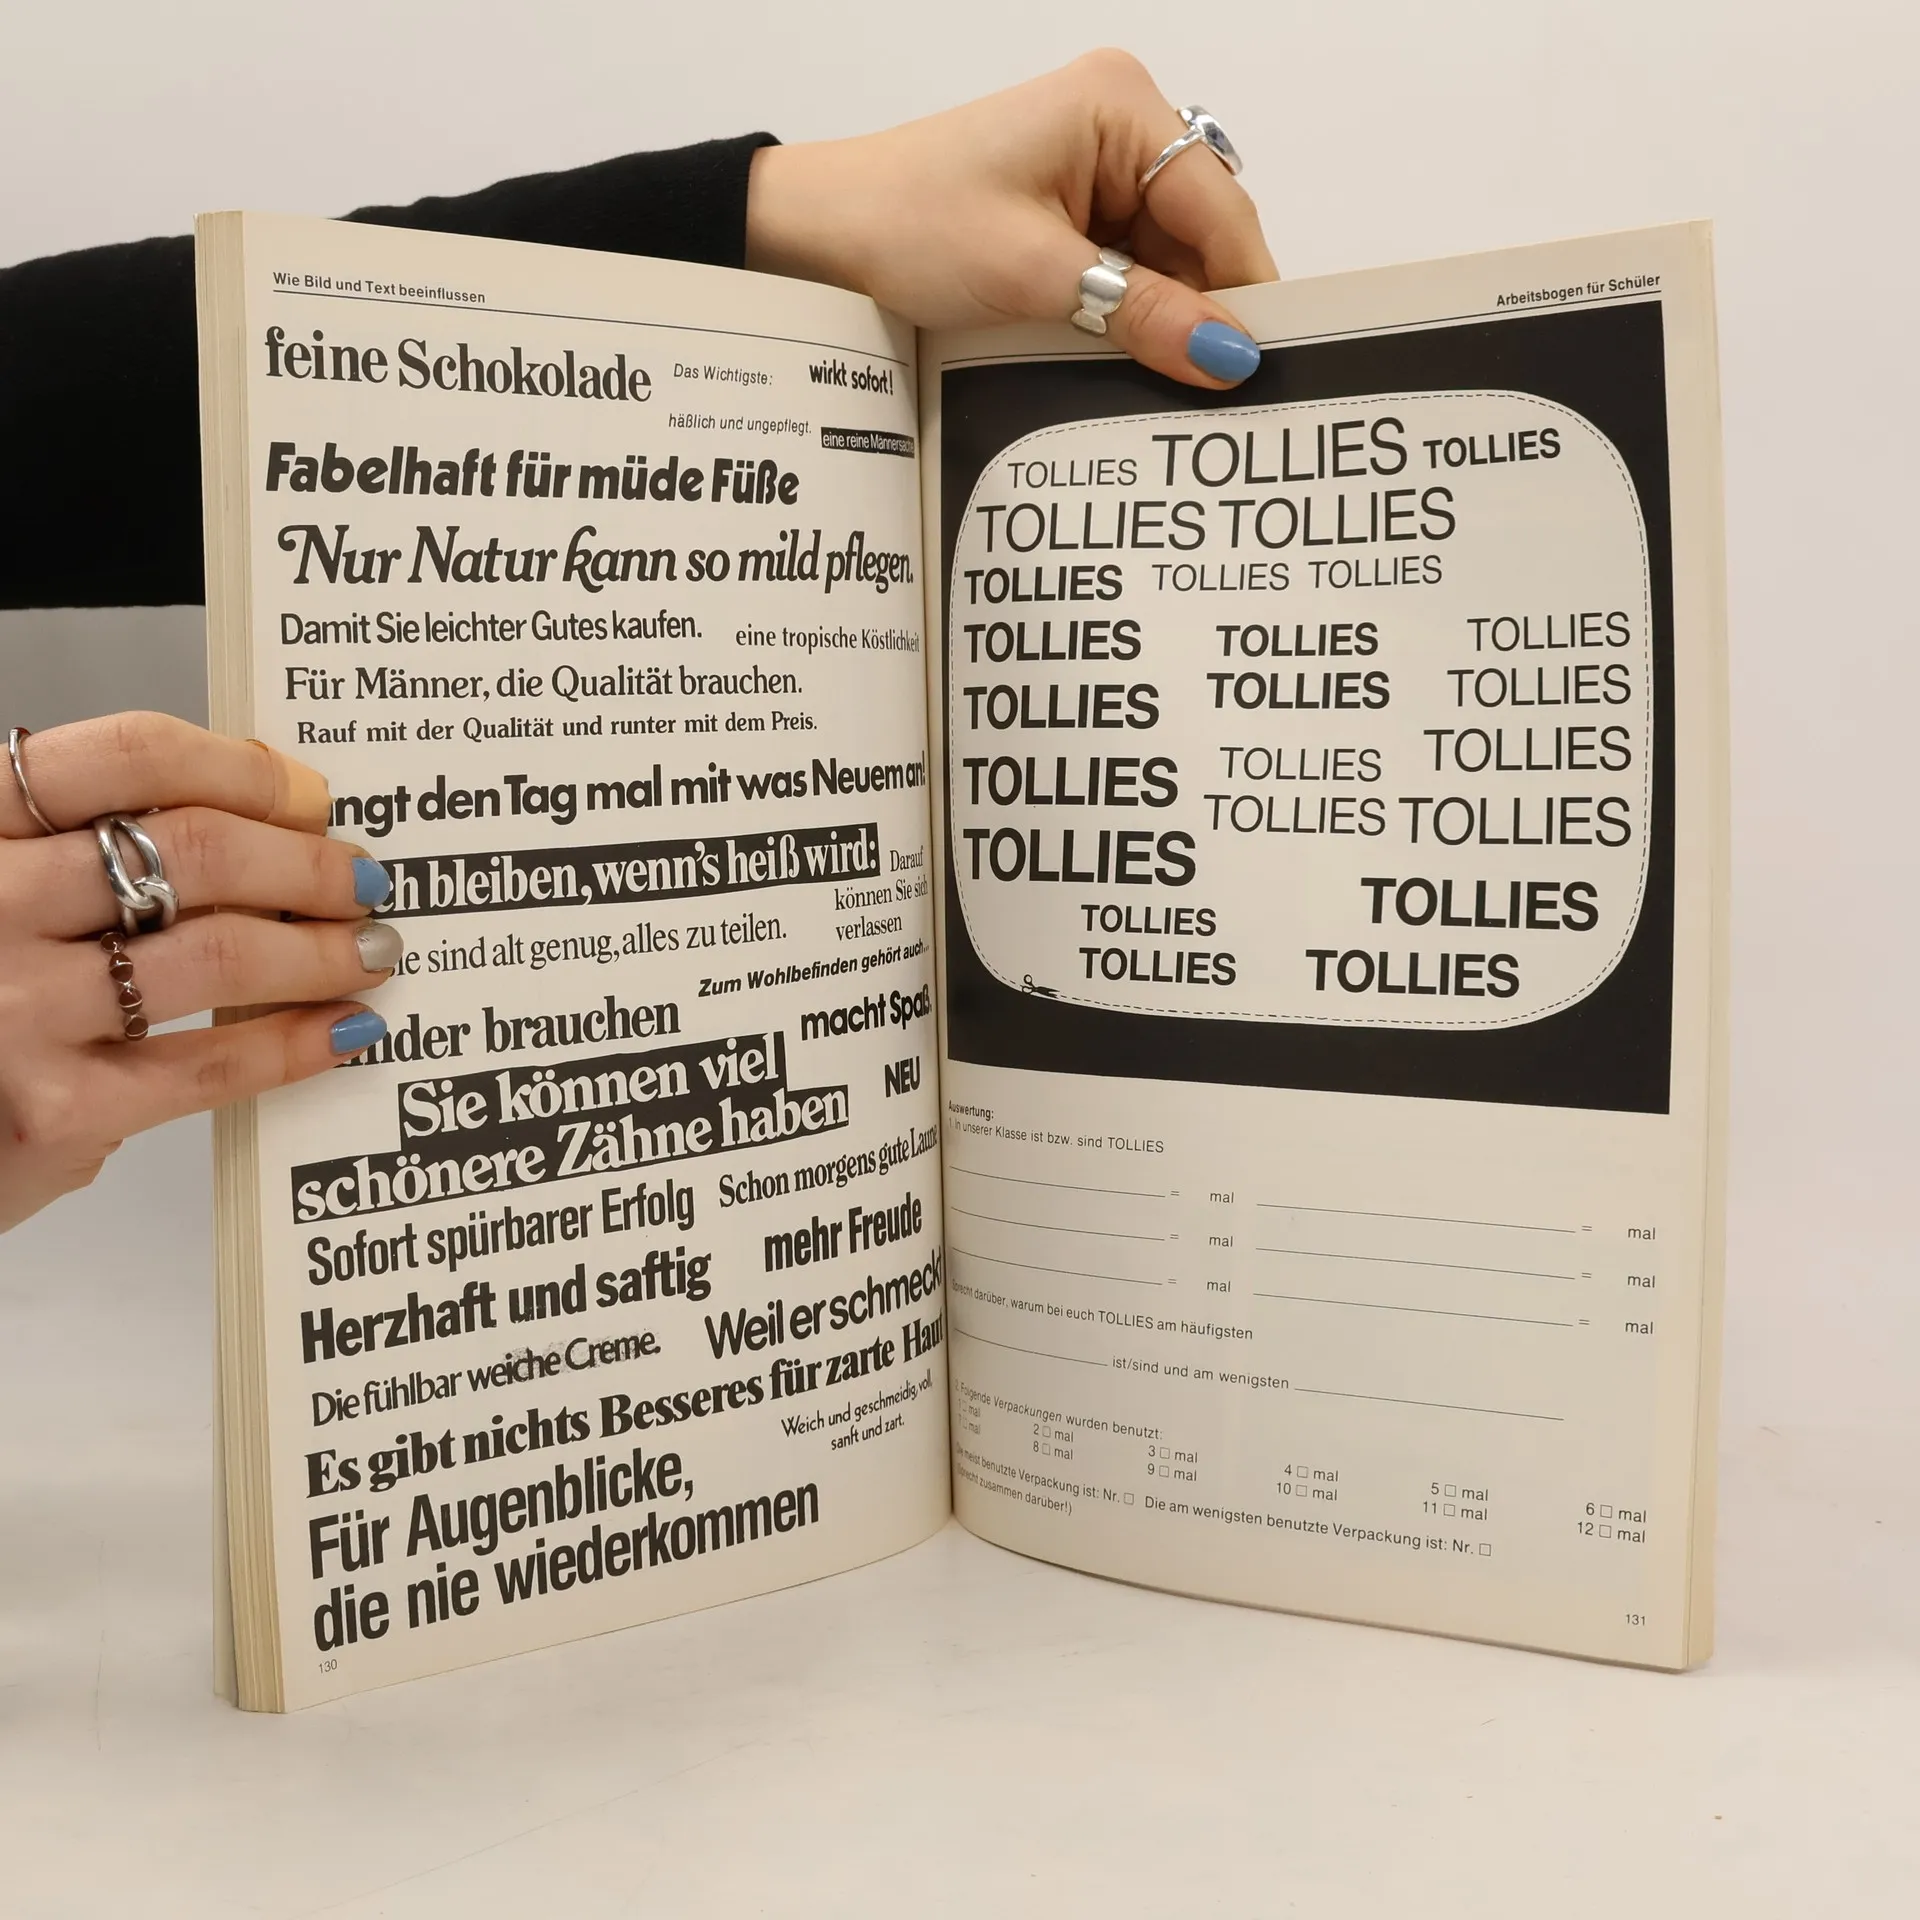 Wie Bild und Text beeinflussen
feine Schokolade
Das Wichtigste:
wirkt sofort!
häßlich und ungepflegt.
eine reine Männersache
Fabelhaft für müde Füße
Nur Natur kann so mild pflegen.
Damit Sie leichter Gutes kaufen.
eine tropische Köstlichkeit
Für Männer, die Qualität brauchen.
Rauf mit der Qualität und runter mit dem Preis.
ngt den Tag mal mit was Neuem an!
ch bleiben, wenn's heiß wird:
Darauf
können Sie sich
verlassen
ie sind alt genug, alles zu teilen.
Zum Wohlbefinden gehört auch...
nder brauchen
macht Spaß.
Sie können viel
schönere Zähne haben
NEU
Sofort spürbarer Erfolg
Schon morgens gute Laune
Herzhaft und saftig
mehr Freude
Die fühlbar weiche Creme.
Weil er schmeckt
Es gibt nichts Besseres für zarte Haut
Weich und geschmeidig, voll,
sanft und zart.
Für Augenblicke,
die nie wiederkommen
130
Arbeitsbogen für Schüler
TOLLIES TOLLIES TOLLIES
TOLLIES TOLLIES
TOLLIES TOLLIES TOLLIES
TOLLIES TOLLIES TOLLIES
TOLLIES TOLLIES TOLLIES
TOLLIES TOLLIES TOLLIES
TOLLIES TOLLIES TOLLIES
TOLLIES TOLLIES
TOLLIES TOLLIES
Auswertung:
1. In unserer Klasse ist bzw. sind TOLLIES
= mal = mal
= mal = mal
= mal = mal
Sprecht darüber, warum bei euch TOLLIES am häufigsten
ist/sind und am wenigsten
2. Folgende Verpackungen wurden benutzt:
1 □ mal 2 □ mal 3 □ mal 4 □ mal 5 □ mal 6 □ mal
7 □ mal 8 □ mal 9 □ mal 10 □ mal 11 □ mal 12 □ mal
Die meist benutzte Verpackung ist: Nr. □ Die am wenigsten benutzte Verpackung ist: Nr. □
(Sprecht zusammen darüber!)
131